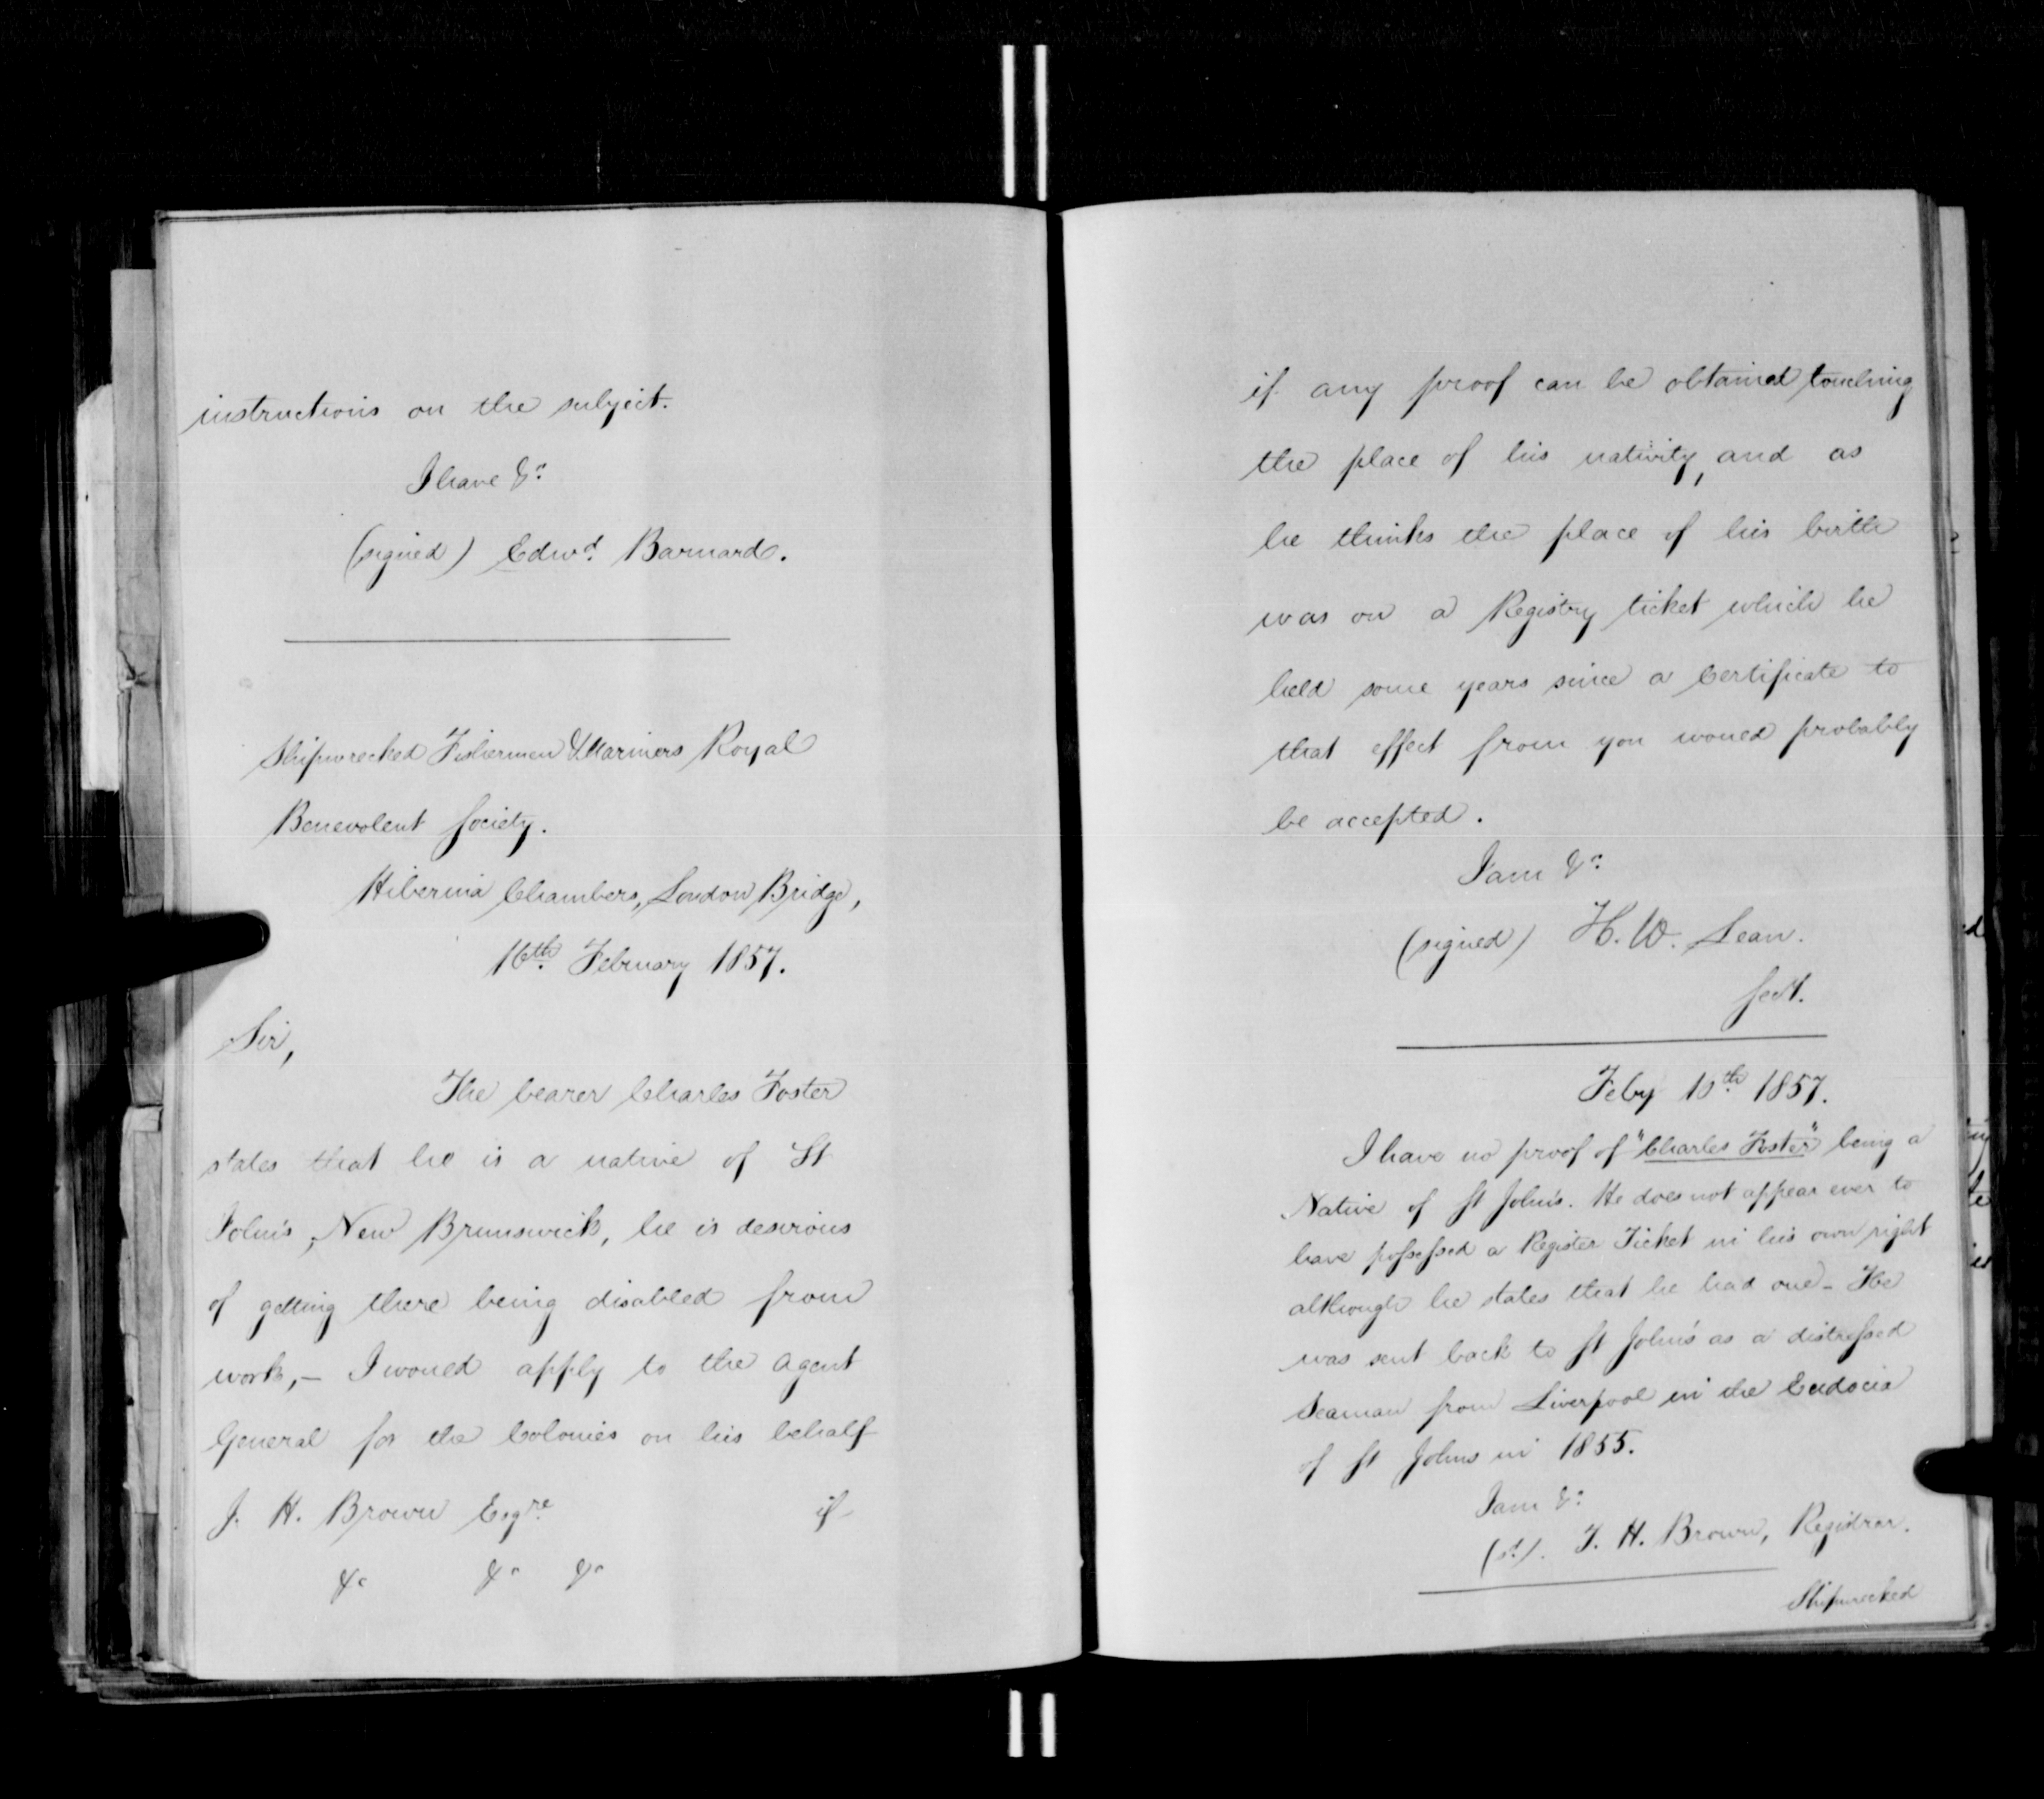 instructions on the subject.
I have &c
(signed) Edwd. Barnard.
Shipwrecked Fishermen & Mariners Royal
Benevolent Society.
Hibernia Chambers, London Bridge,
16th February 1857.
Sir,
The bearer Charles Foster
states that he is a native of St
John's, New Brunswick, he is desirous
of getting there being disabled from
work,— I would apply to the Agent
General for the Colonies on his behalf
J. H. Brown Esqre
if
&c &c &c
if any proof can be obtained touching
the place of his nativity, and as
he thinks the place of his birth
was on a Registry ticket which he
held some years since a Certificate to
that effect from you would probably
be accepted.
I am &c
(signed) H. W. Lean.
Sect.
Feby 10th 1857.
I have no proof of "Charles Foster" being a
Native of St John's. He does not appear ever to
have possessed a Register Ticket in his own right
although he states that he had one — He
was sent back to St John's as a distressed
Seaman from Liverpool in the Eudocia
of St Johns in 1855.
I am &c
(sd). J. H. Brown, Registrar.
Shipwrecked